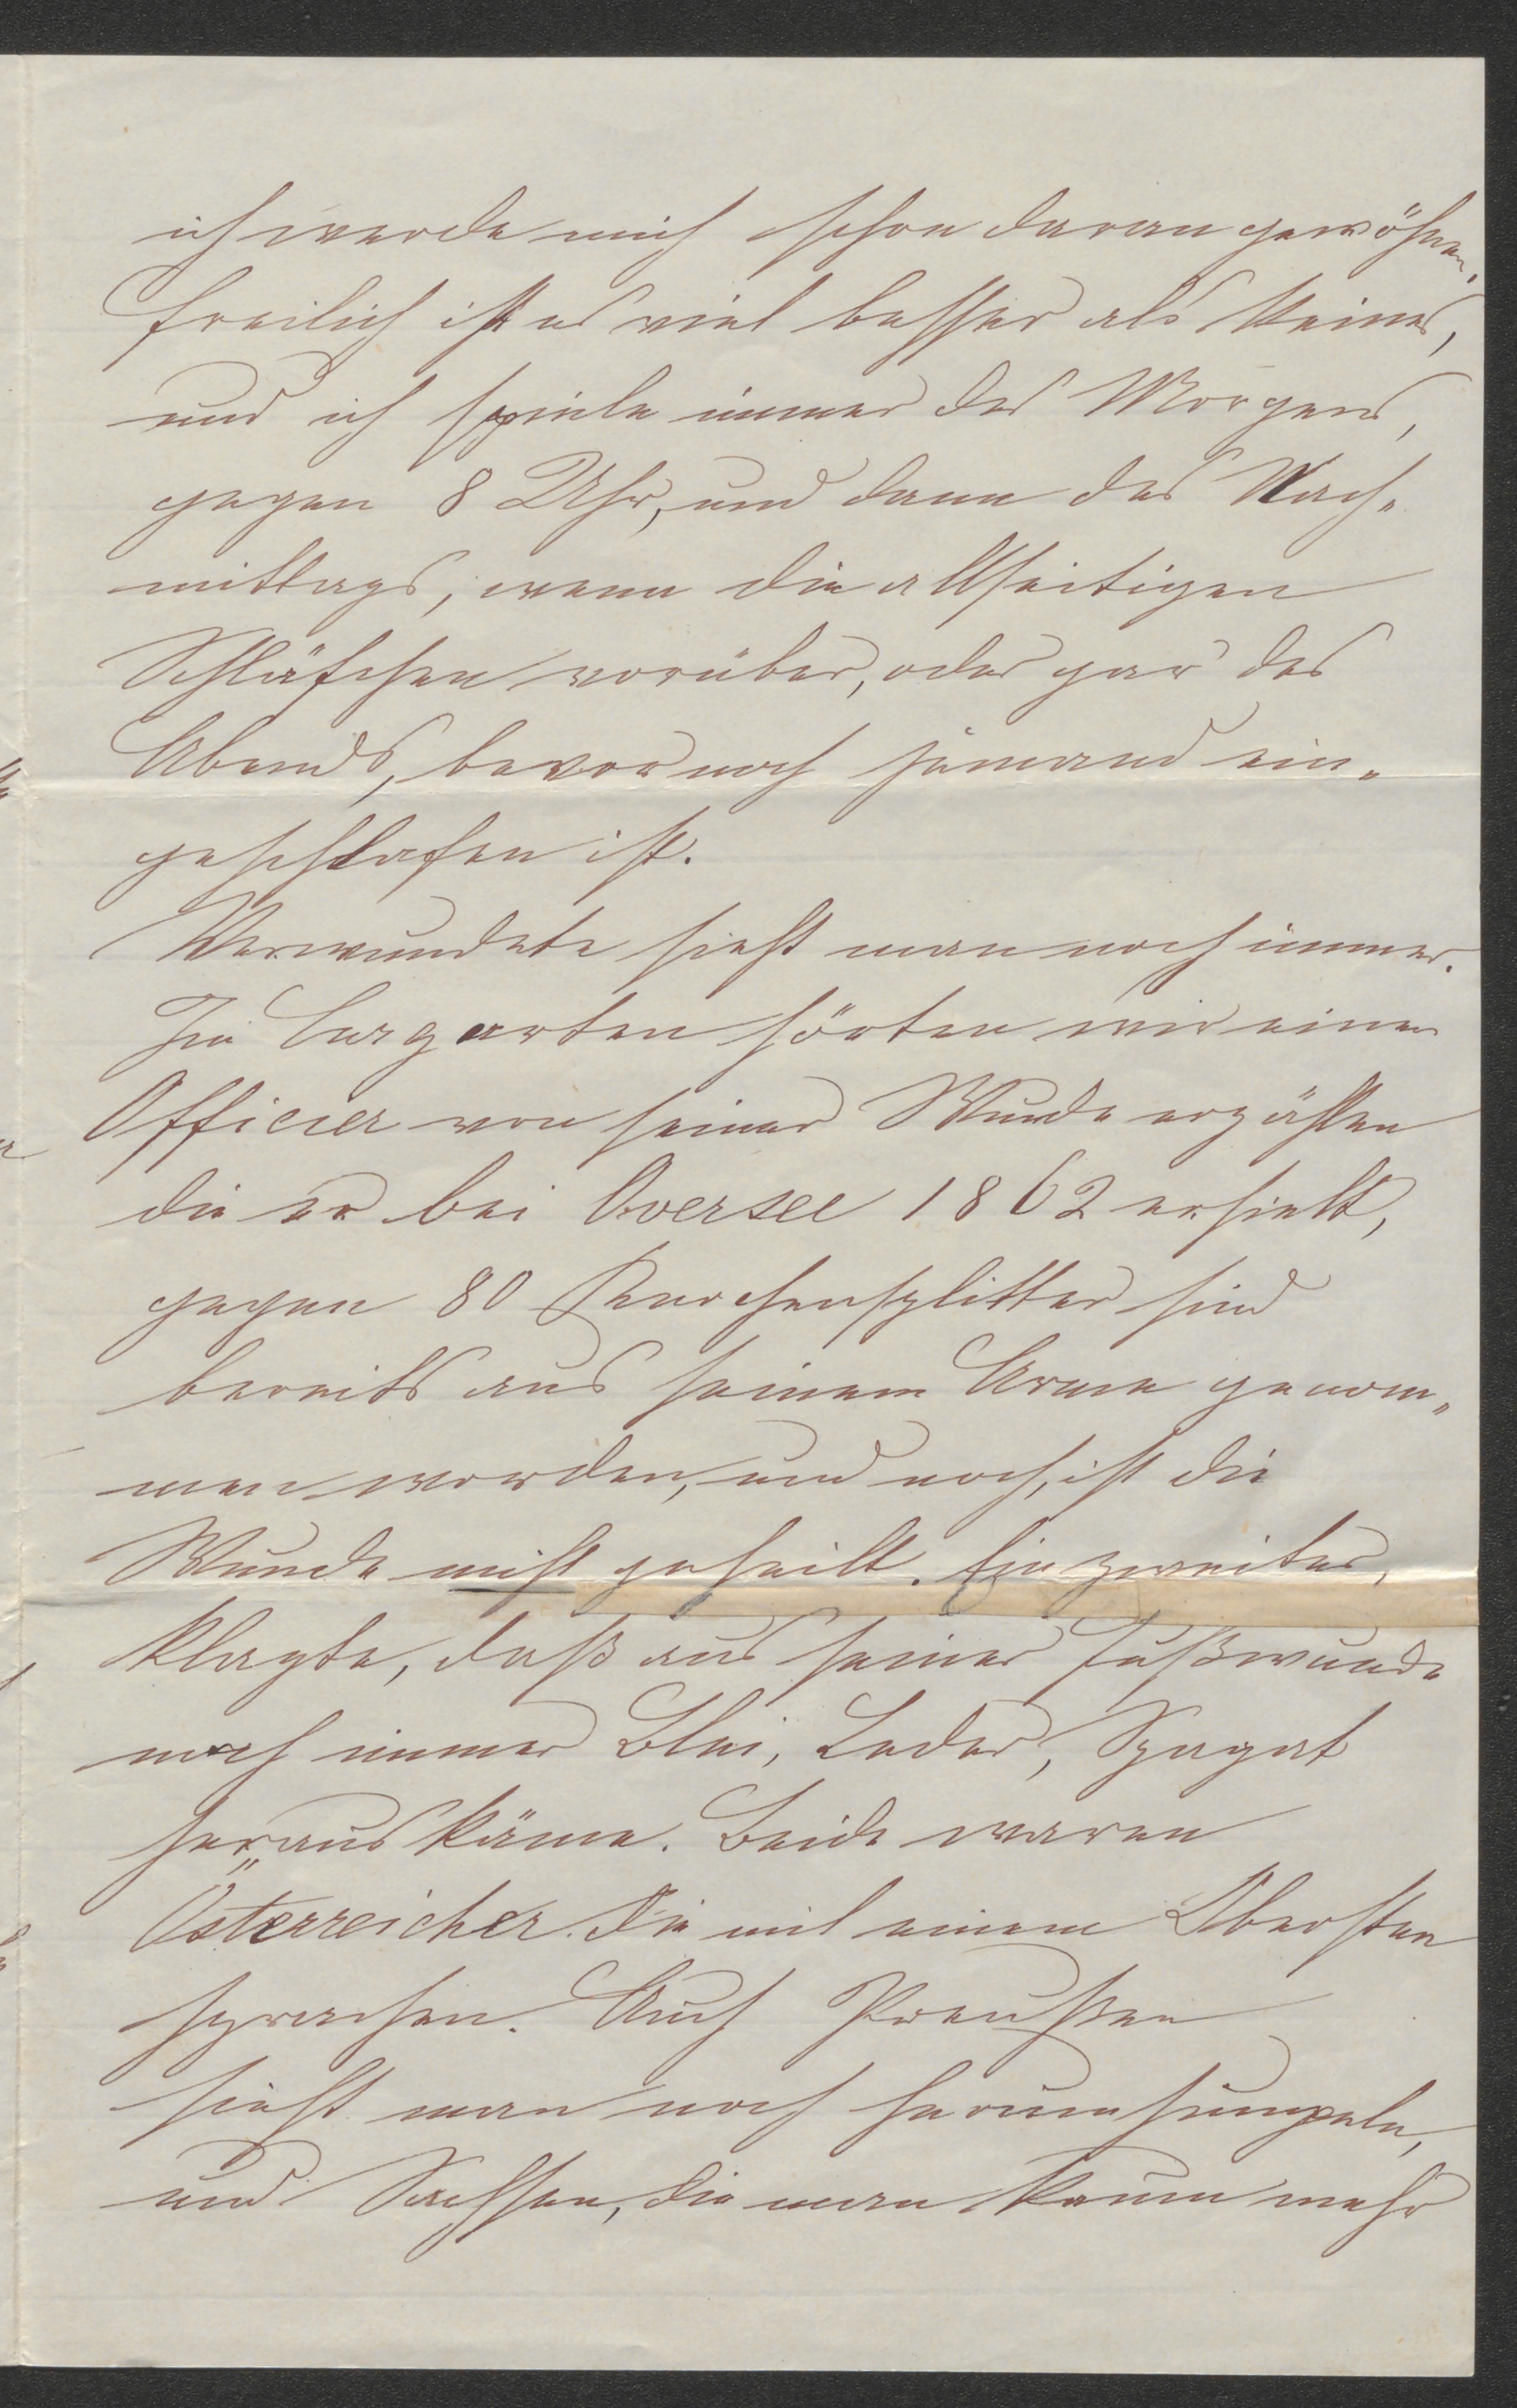 ich werde mich schon daran gewöhnen,
freilich ist es viel besser als keines,
und ich spiele immer des Morgens,
gegen 8 Uhr, und dann des Nach-
mittags, wenn die allseitigen
Schläfchen vorüber, oder gar des
Abends, bevor noch jemand ein-
geschlafen ist.
Verwundete sieht man noch immer.
Im Curgarten hörten wir einen
Officier von seiner Wunde erzählen
die er bei Oversee 1862 erhielt,
gegen 80 Knochensplitter sind
bereits aus seinem Arme genom-
men worden, und noch, ist die
Wunde nicht geheilt. Ein zweiter,
klagte, daß aus seiner Fußwunde
noch immer Blei, Leder, Spagat
heraus käme. Beide waren
Österreicher die mit einem Obersten
sprachen. Auch Preußen
sieht man noch herumhumpeln,
und Sachsen, die man kaum mehr